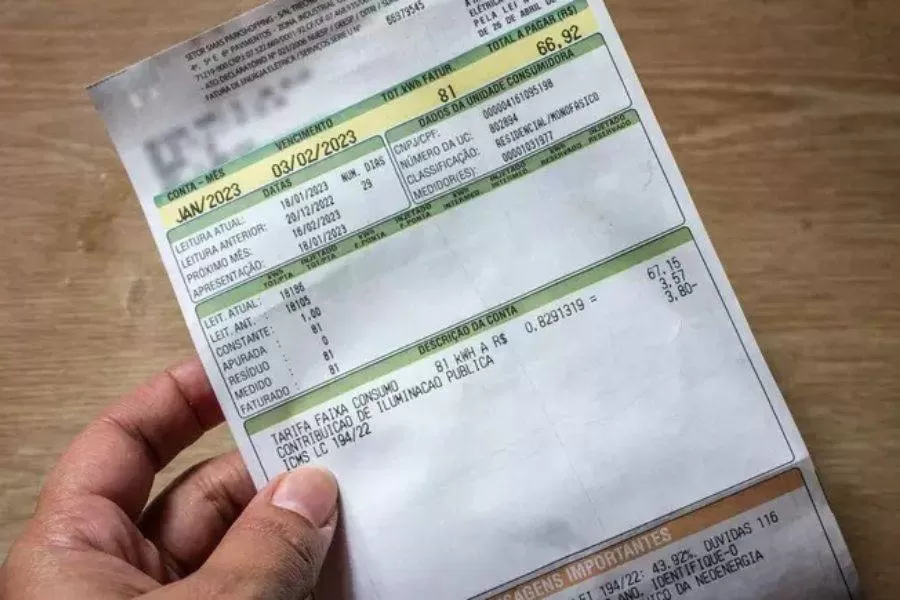 SETOR SMAS PARKSHOPPING - S/N, TERREO
4º, 5º E 6º PAVIMENTOS - ZONA INDUSTRIAL
- ATO DECLARATÓRIO Nº 021/2006 NUESP / GEESP / DITRI /
FATURA DE ENERGIA ELÉTRICA / SERVIÇOS SÉRIE U Nº
66979545
PELA LEI Nº
DE 26 DE ABRIL DE
CONTA - MÊS VENCIMENTO TOT.KWH FATUR TOTAL A PAGAR (R$)
JAN/2023 03/02/2023 81 66,92
DATAS NUM. DIAS
LEITURA ATUAL: 18/01/2023 29
LEITURA ANTERIOR: 20/12/2022
PROXIMO MÊS: 16/02/2023
APRESENTAÇÃO: 18/01/2023
DADOS DA UNIDADE CONSUMIDORA
CNPJ/CPF: 00000416109519B
NÚMERO DA UC: 802894
CLASSIFICAÇÃO: RESIDENCIAL/MONOFASICO
MEDIDOR(ES): 00001031977
KWH TOT/PTA INJETADO TOT/PTA KWH F.PONTA INJETADO F.PONTA KWH INTERMED. INJETADO INTERMED. KWH RESERVADO INJETADO RESERVADO
LEIT. ATUAL: 18186
LEIT. ANT. : 18105
CONSTANTE: 1.00
APURADA : 81
RESÍDUO : 0
MEDIDO : 81
FATURADO : 81
DESCRIÇÃO DA CONTA
TARIFA FAIXA CONSUMO 81 KWH A R$ 0.8291319 = 67,15
CONTRIBUICAO DE ILUMINACAO PUBLICA 3,57
ICMS LC 194/22 3,80-
IMPORTANTES
LEI 194/22: 43.92%. DUVIDAS 116
ANO. IDENTIFIQUE-O
DA NEOENERGIA